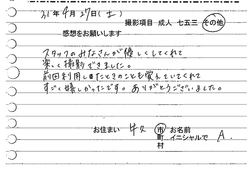 31年4月27日(土)
撮影項目 成人 七五三 その他
感想をお願いします
スタッフのみなさんが優しくしてくれて
楽しく撮影できました。
前回利用したときのことも覚えていてくれて
すごく嬉しかったです。ありがとうございました。
お住まい 牧 市 町 村 お名前 イニシャルで A.